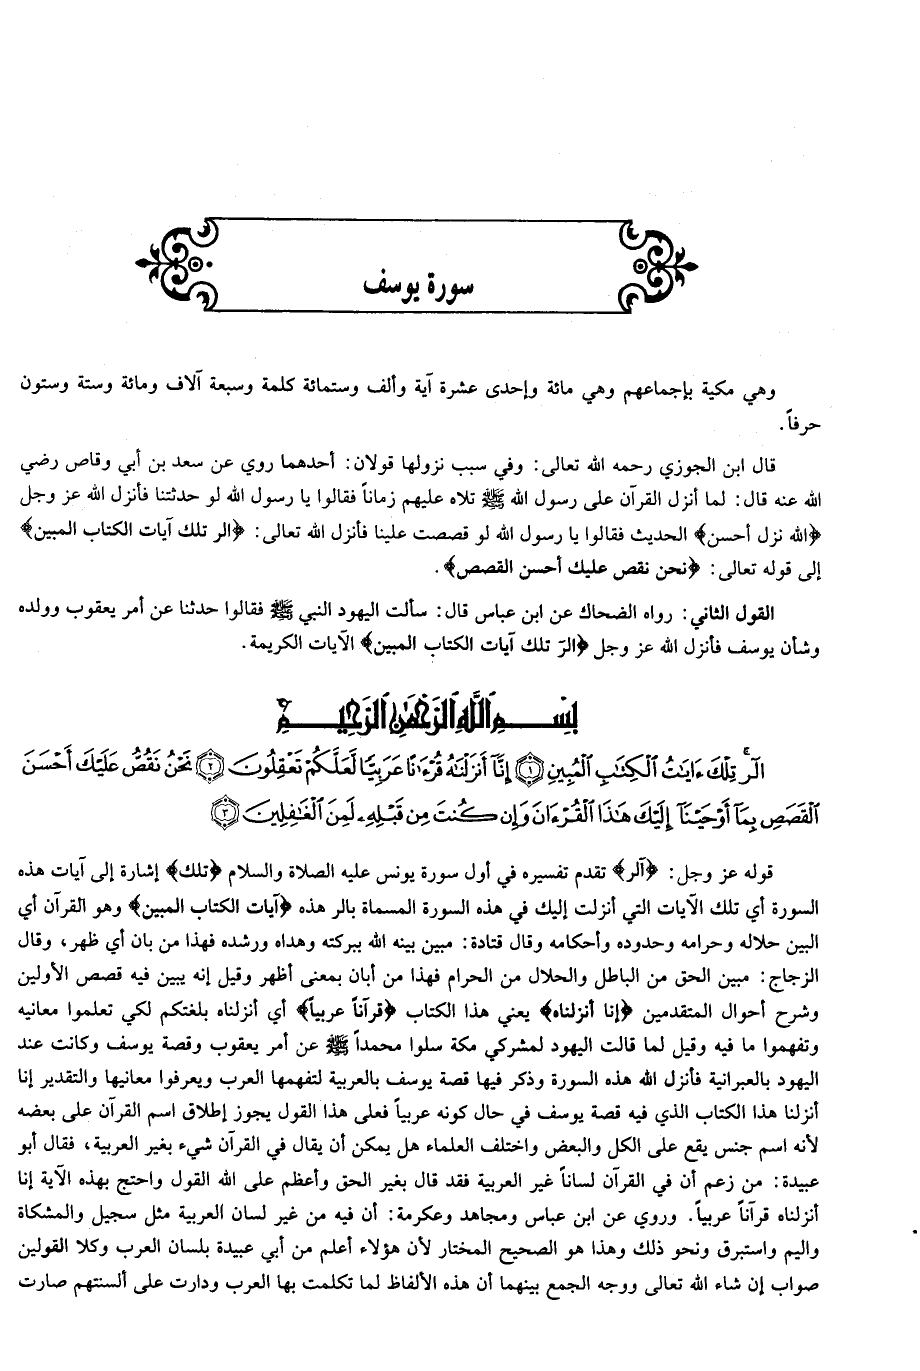 سورة يوسف
وهي مكية بإجماعهم وهي مائة وإحدى عشرة آية وألف وستمائة كلمة وسبعة آلاف ومائة وستة وستون
حرفاً.
قال ابن الجوزي رحمه الله تعالى: وفي سبب نزولها قولان: أحدهما روي عن سعد بن أبي وقاص رضي
الله عنه قال: لما أنزل القرآن على رسول الله ﷺ تلاه عليهم زماناً فقالوا يا رسول الله لو حدثتنا فأنزل الله عز وجل
﴿الله نزل أحسن﴾ الحديث فقالوا يا رسول الله لو قصصت علينا فأنزل الله تعالى: ﴿الر تلك آيات الكتاب المبين﴾
إلى قوله تعالى: ﴿نحن نقص عليك أحسن القصص﴾.
القول الثاني: رواه الضحاك عن ابن عباس قال: سألت اليهود النبي ﷺ فقالوا حدثنا عن أمر يعقوب وولده
وشأن يوسف فأنزل الله عز وجل ﴿الرَ تلك آيات الكتاب المبين﴾ الآيات الكريمة.
بِسْمِ اللَّهِ الرَّحْمَٰنِ الرَّحِيمِ
الٓرۚ تِلْكَ ءَايَٰتُ الْكِتَٰبِ الْمُبِينِ ﴿١﴾ إِنَّآ أَنزَلْنَٰهُ قُرْءَٰنًا عَرَبِيًّا لَّعَلَّكُمْ تَعْقِلُونَ ﴿٢﴾ نَحْنُ نَقُصُّ عَلَيْكَ أَحْسَنَ
الْقَصَصِ بِمَآ أَوْحَيْنَآ إِلَيْكَ هَٰذَا الْقُرْءَانَ وَإِن كُنتَ مِن قَبْلِهِۦ لَمِنَ الْغَٰفِلِينَ ﴿٣﴾
قوله عز وجل: ﴿آلر﴾ تقدم تفسيره في أول سورة يونس عليه الصلاة والسلام ﴿تلك﴾ إشارة إلى آيات هذه
السورة أي تلك الآيات التي أنزلت إليك في هذه السورة المسماة بالر هذه ﴿آيات الكتاب المبين﴾ وهو القرآن أي
البين حلاله وحرامه وحدوده وأحكامه وقال قتادة: مبين بينه الله ببركته وهداه ورشده فهذا من بان أي ظهر، وقال
الزجاج: مبين الحق من الباطل والحلال من الحرام فهذا من أبان بمعنى أظهر وقيل إنه يبين فيه قصص الأولين
وشرح أحوال المتقدمين ﴿إنا أنزلناه﴾ يعني هذا الكتاب ﴿قرآناً عربياً﴾ أي أنزلناه بلغتكم لكي تعلموا معانيه
وتفهموا ما فيه وقيل لما قالت اليهود لمشركي مكة سلوا محمداً ﷺ عن أمر يعقوب وقصة يوسف وكانت عند
اليهود بالعبرانية فأنزل الله هذه السورة وذكر فيها قصة يوسف بالعربية لتفهمها العرب ويعرفوا معانيها والتقدير إنا
أنزلنا هذا الكتاب الذي فيه قصة يوسف في حال كونه عربياً فعلى هذا القول يجوز إطلاق اسم القرآن على بعضه
لأنه اسم جنس يقع على الكل والبعض واختلف العلماء هل يمكن أن يقال في القرآن شيء بغير العربية، فقال أبو
عبيدة: من زعم أن في القرآن لساناً غير العربية فقد قال بغير الحق وأعظم على الله القول واحتج بهذه الآية إنا
أنزلناه قرآناً عربياً. وروي عن ابن عباس ومجاهد وعكرمة: أن فيه من غير لسان العربية مثل سجيل والمشكاة
واليم واستبرق ونحو ذلك وهذا هو الصحيح المختار لأن هؤلاء أعلم من أبي عبيدة بلسان العرب وكلا القولين
صواب إن شاء الله تعالى ووجه الجمع بينهما أن هذه الألفاظ لما تكلمت بها العرب ودارت على ألسنتهم صارت